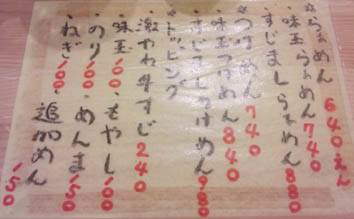 *らぁめん 640えん
・味玉らぁめん 740
・すじましらぁめん 880
*つけめん 740
・味玉つけめん 840
・すじましつけめん 980
*トッピング
・激やわ牛すじ 240
・味玉 100 ・もやし 100
・のり 100 ・めんま 150
・ねぎ 100 ・追加めん 150